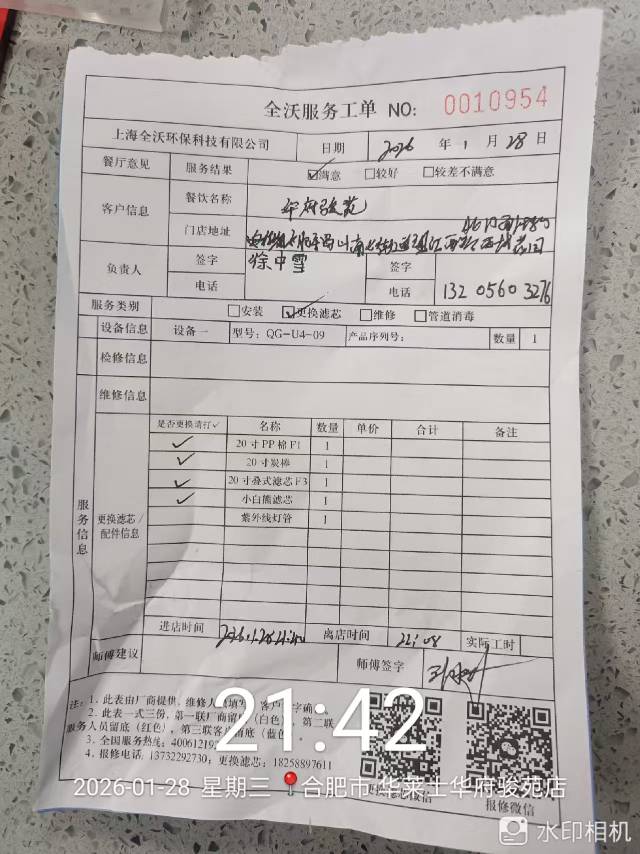 全沃服务工单 NO: 0010954
上海全沃环保科技有限公司 日期 2026 年 1 月 28 日
餐厅意见 服务结果 ☑满意 □较好 □较差不满意
客户信息 餐饮名称 华府骏苑
门店地址
负责人 签字 徐中雪 签字
电话 电话 132 0560 3276
服务类别 □安装 ☑更换滤芯 □维修 □管道消毒
设备信息 设备一 型号: QG-U4-09 产品序列号: 数量 1
检修信息
维修信息
服务信息 更换滤芯/配件信息
是否更换请打✓ 名称 数量 单价 合计 备注
✓ 20寸PP棉F1 1
✓ 20寸炭棒 1
✓ 20寸叠式滤芯F3 1
✓ 小白熊滤芯 1
紫外线灯管 1
进店时间 离店时间 22:08 实际工时
师傅建议 师傅签字
注: 1、此表由厂商提供、维修人 填写 客户 字确
2、此表一式三份，第一联厂商留 (白色) 第二联
服务人员留底(红色)，第三联客 留底(蓝色)
3、全国服务热线: 40061219
4、报修电话: 13732292730; 更换滤芯: 18258897611
微信
报修微信
21:42
2026-01-28 星期三 合肥市·华莱士华府骏苑店
水印相机